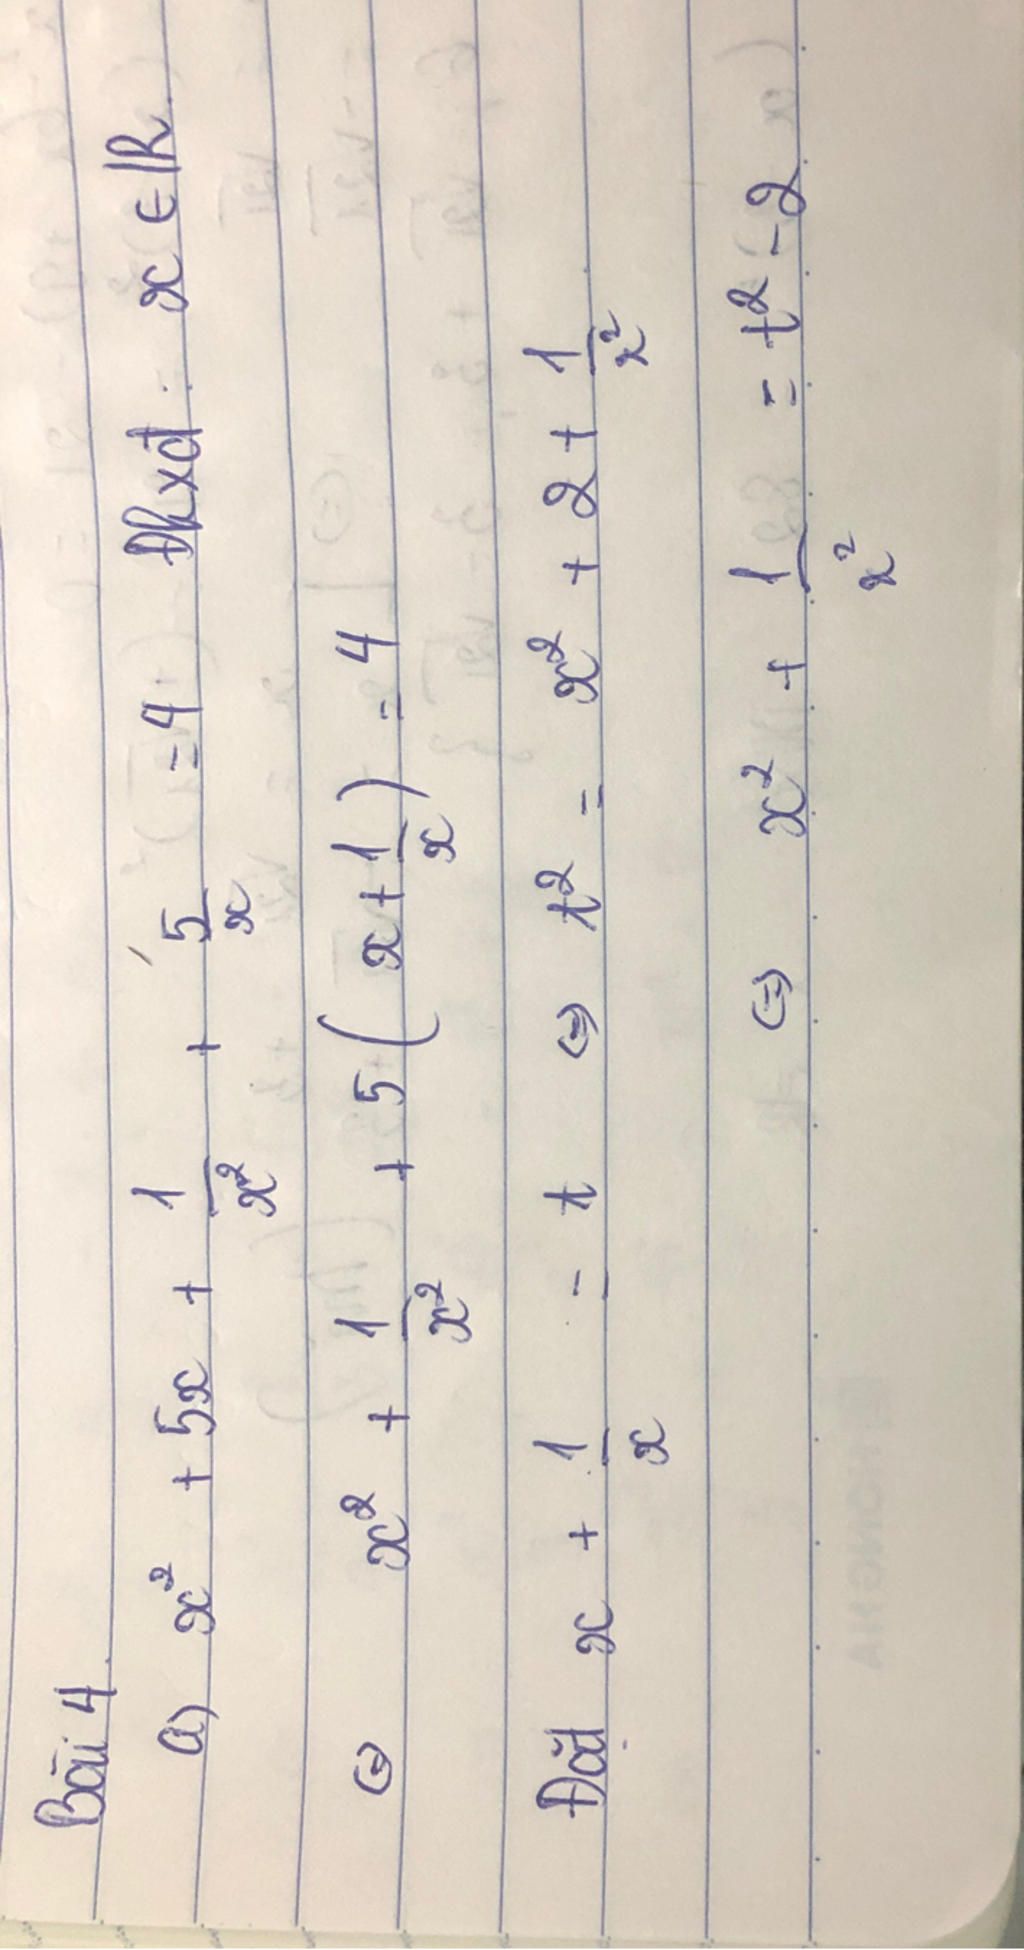 Bài 4
a) x² + 5x + 1/x² + 5/x = 4 Đkxđ : x ∈ ℝ
⇔ x² + 1/x² + 5(x + 1/x) = 4
Đặt x + 1/x = t ⇔ t² = x² + 2 + 1/x²
⇔ x² + 1/x² = t² - 2